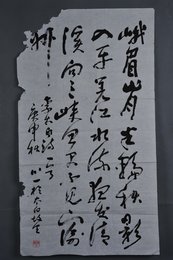 峨眉山月半輪秋影
入平羌江水流夜发清
溪向三峡思君不见下渝
州
太白诗一首
庚申秋